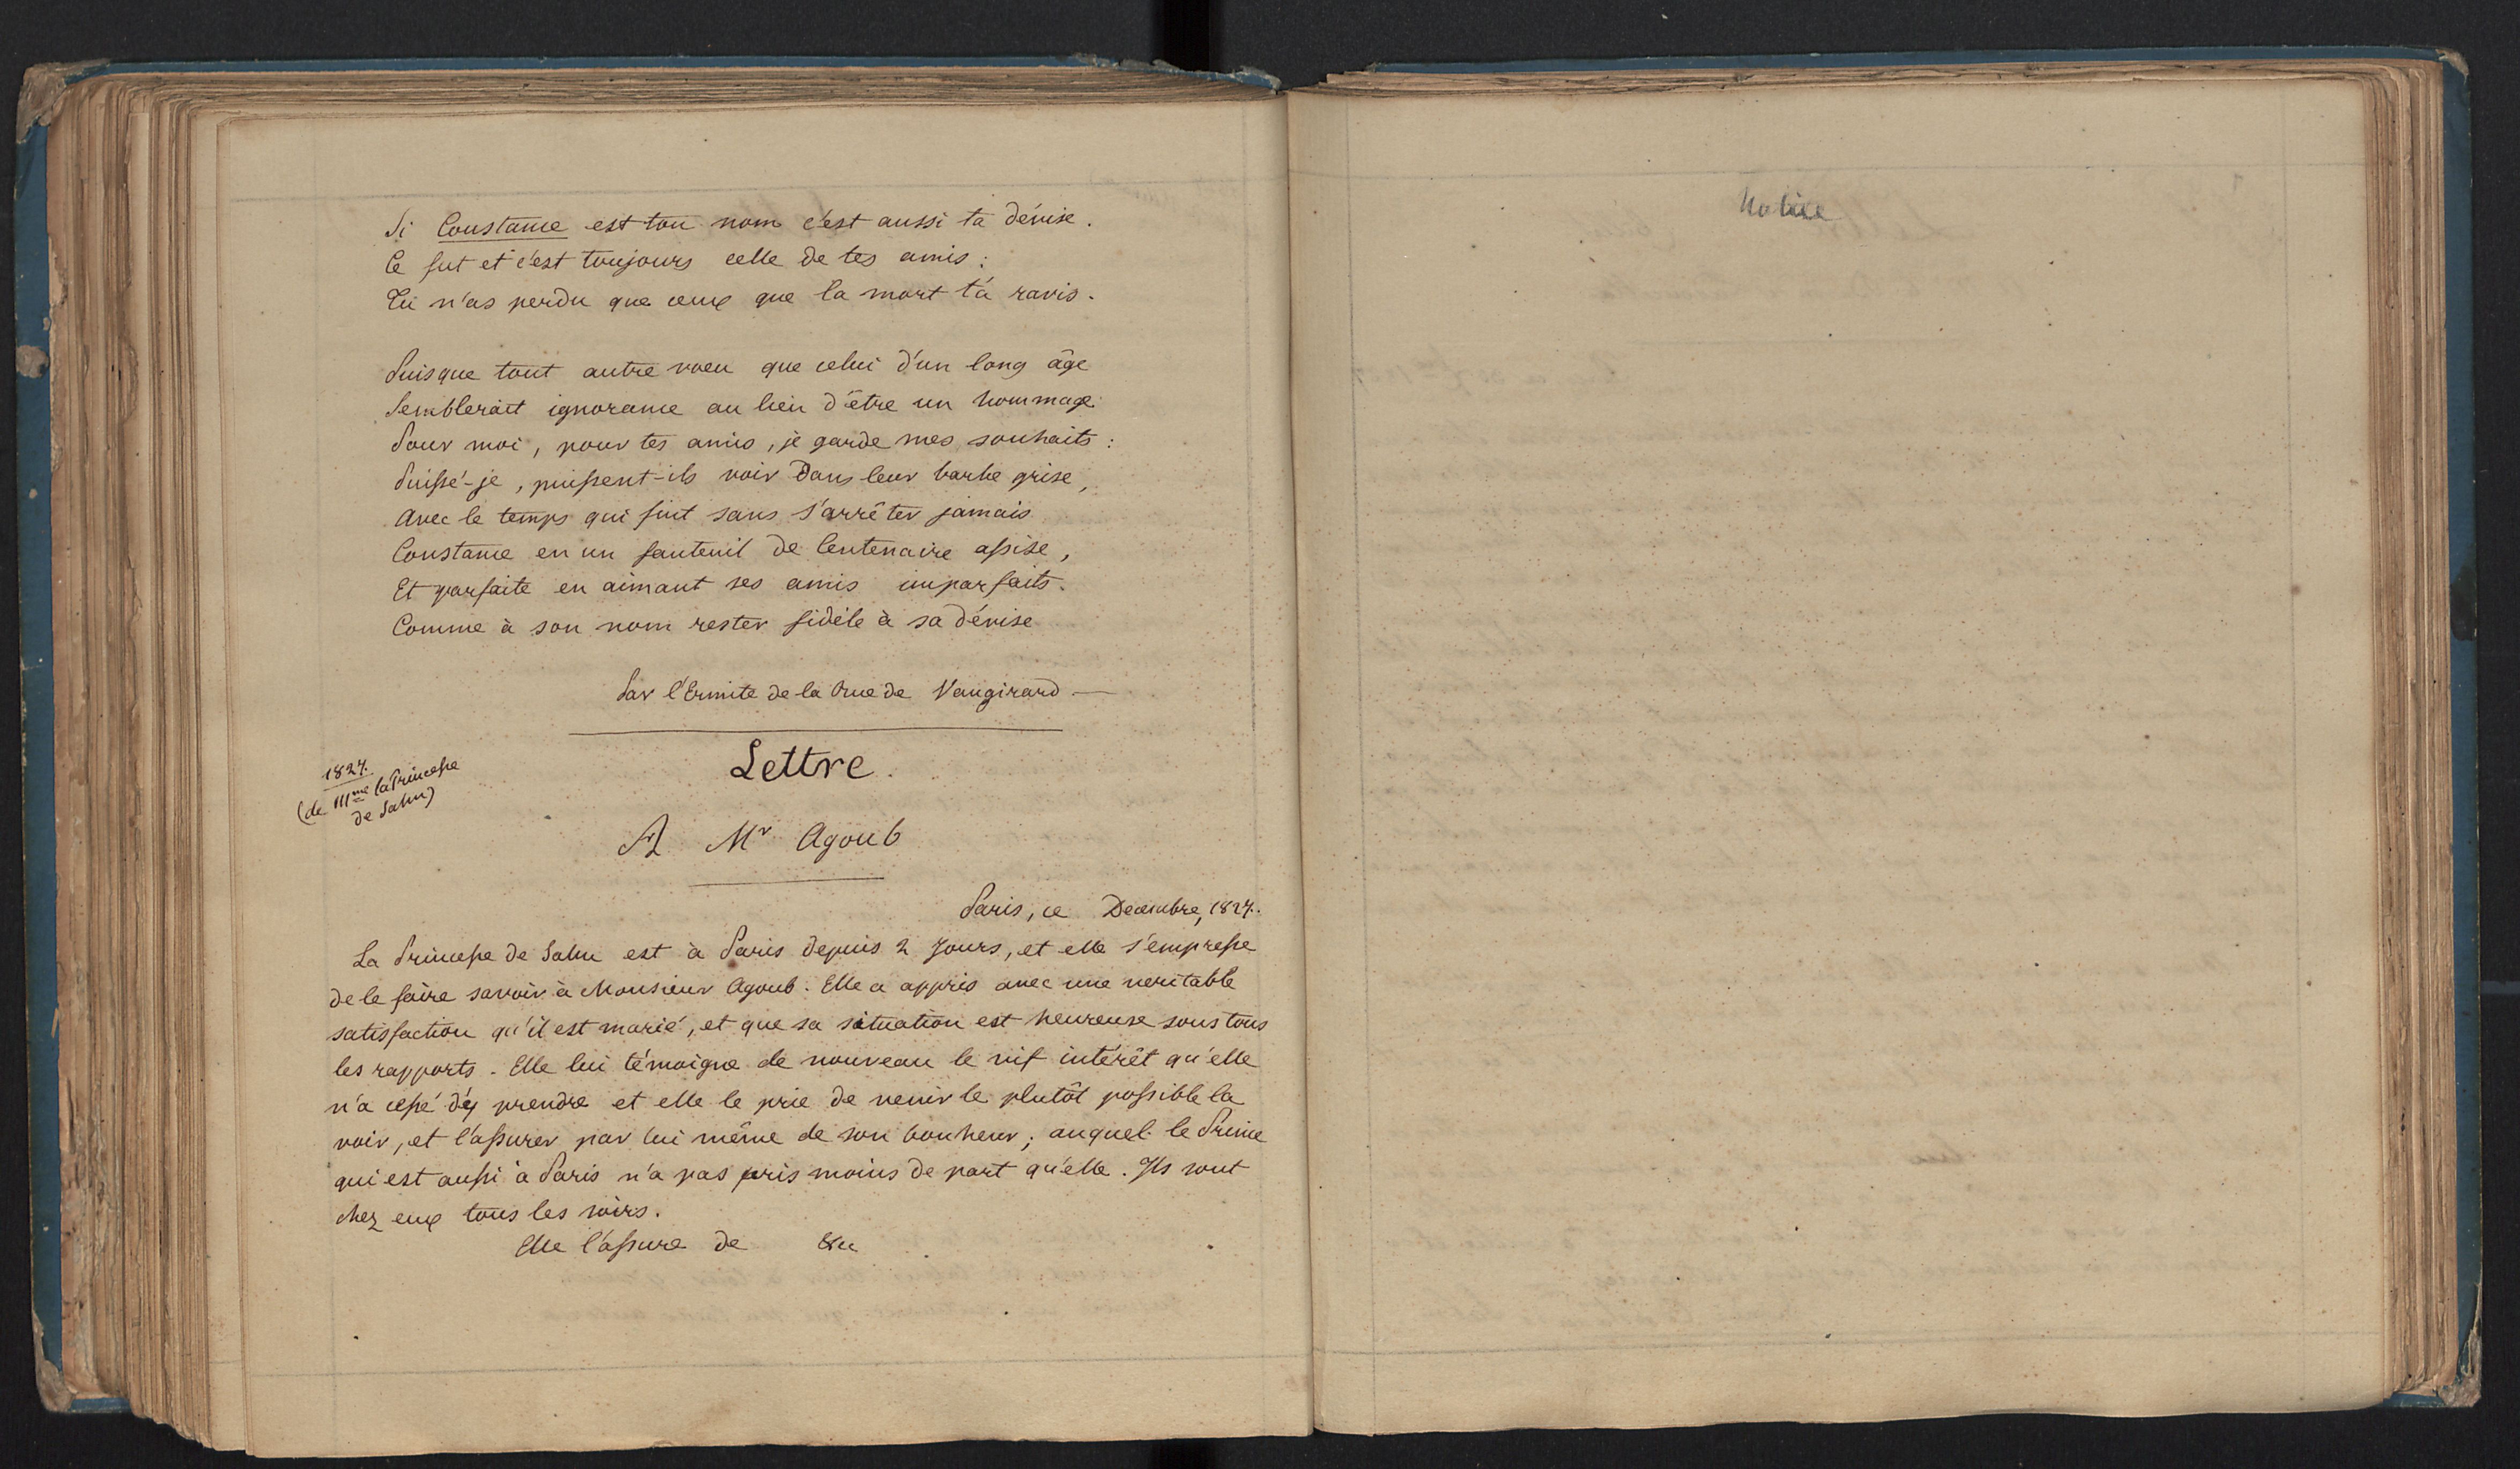 Si Constance est ton nom c'est aussi ta dévise.
Ce fut et c'est toujours celle de tes amis :
Tu n'as perdu que ceux que la mort t'a ravis.
Puisque tout autre voeu que celui d'un long âge
Semblerait ignorance au lieu d'être un hommage
Pour moi, pour tes amis, je garde mes souhaits :
Puissé-je, puissent-ils voir dans leur barbe grise,
Avec le temps qui fuit sans s'arrêter jamais
Constance en un fauteuil de Centenaire assise,
Et parfaite en aimant ses amis imparfaits.
Comme à son nom rester fidèle à sa dévise
Par l'Ermite de la Rue de Vaugirard —
Lettre.
1827.
(de Mme la Princesse
de Salm)
A Mr Agoub
Paris, ce Decembre, 1827.
La Princesse de Salm est à Paris depuis 2 Jours, et elle s'empresse
de le faire savoir à Monsieur Agoub. Elle a appris avec une veritable
satisfaction qu'il est marié, et que sa situation est heureuse sous tous
les rapports. Elle lui témoigne de nouveau le vif intérêt qu'elle
n'a cessé d'y prendre et elle le prie de venir le plutôt possible la
voir, et l'assurer par lui même de son bonheur ; auquel le Prince
qui est aussi à Paris n'a pas pris moins de part qu'elle. Ils sont
chez eux tous les soirs.
Elle l'assure de &c
Notice